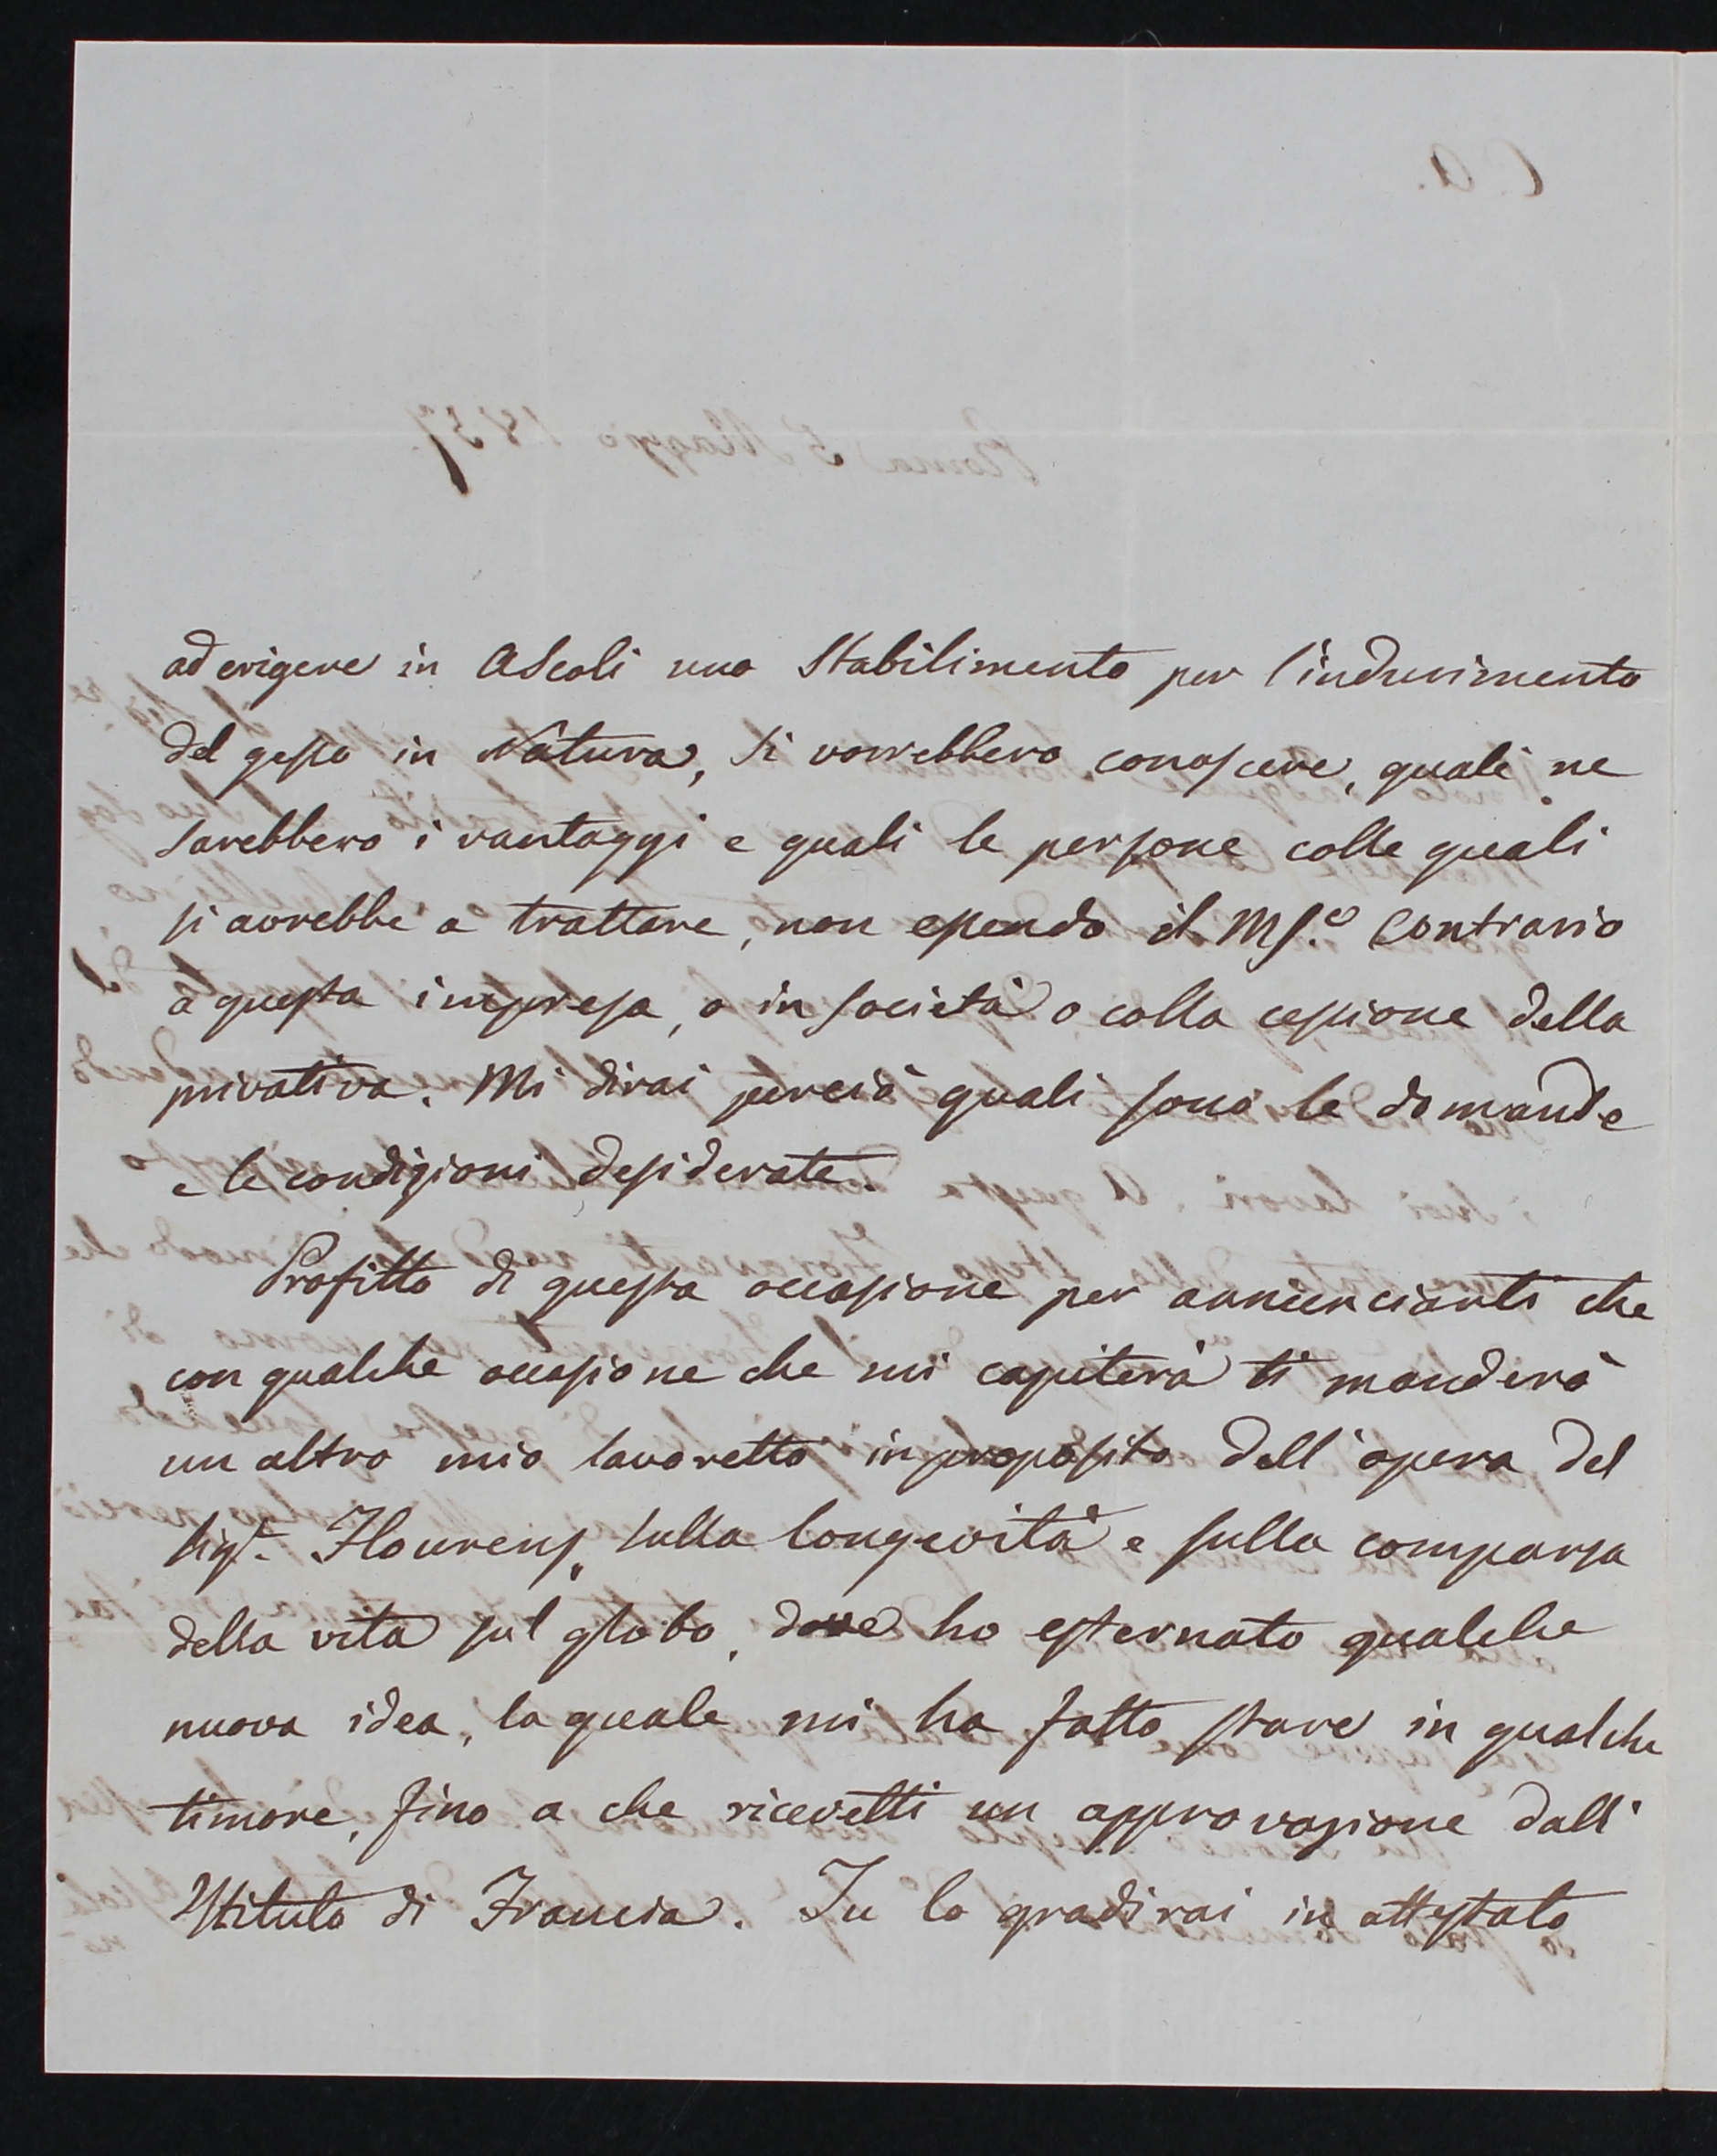 ad erigere in Ascoli uno Stabilimento per l'indurimento
del gesso in Natura, si vorrebbero conoscere, quali ne
sarebbero i vantaggi e quali le persone colle quali
si avrebbe a trattare, non essendo il Mse. Contrario
a questa impresa, o in società o colla cessione della
privativa. Mi dirai perciò quali sono le domande
e le condizioni desiderate.
Profitto di questa occasione per annunciarti che
con qualche occasione che mi capiterà ti manderò
un altro mio lavoretto in proposito dell'opera del
Sigr. Flourens, sulla longevità e sulla comparsa
della vita sul globo, dove ho esternato qualche
nuova idea, la quale mi ha fatto stare in qualche
timore, fino a che ricevetti un approvazione dall'
Istituto di Francia. Tu lo gradirai in attestato
C. A.
Roma 5 Maggio 1857.